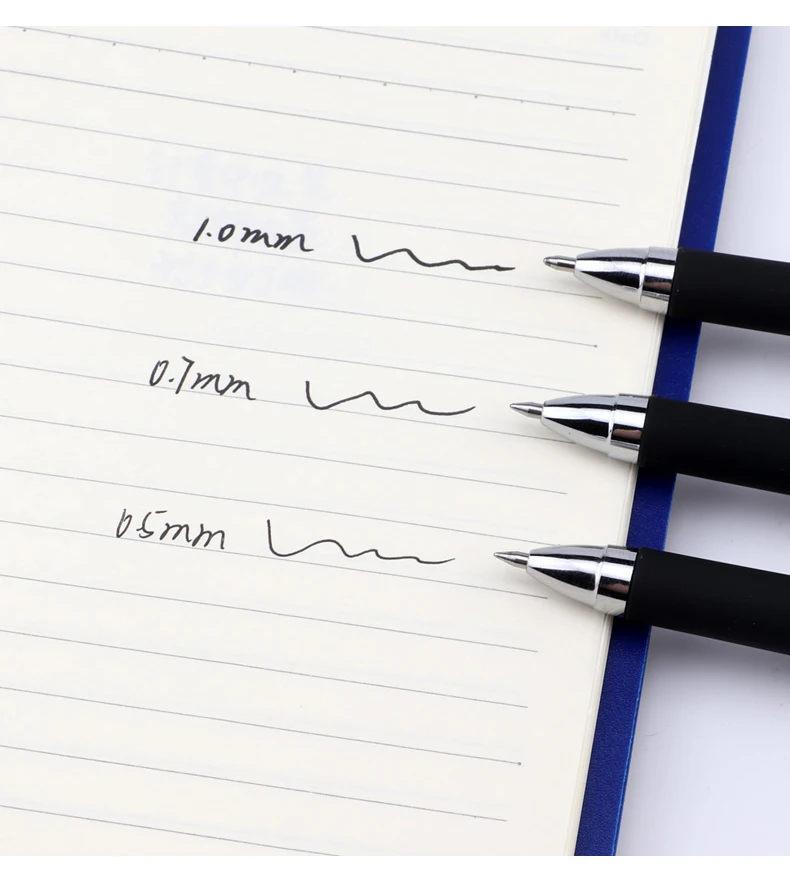 1.0mm
0.7mm
0.5mm